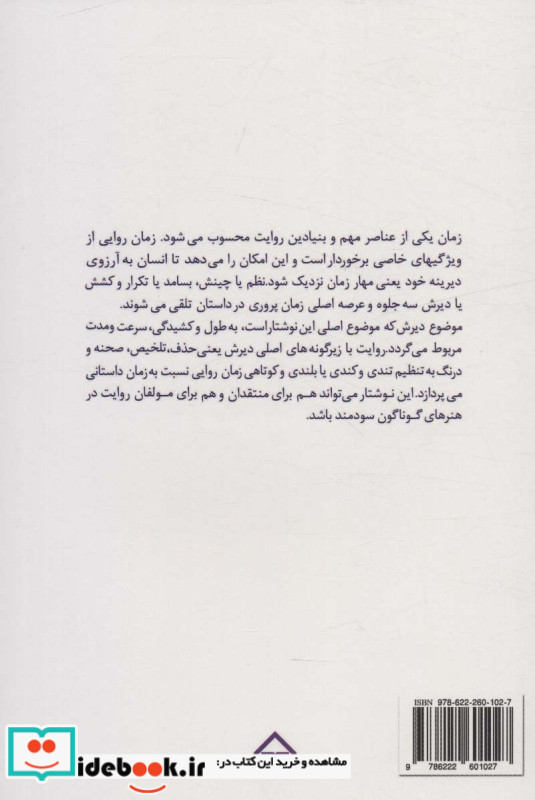 زمان یکی از عناصر مهم و بنیادین روایت محسوب می شود. زمان روایی از
ویژگیهای خاصی برخوردار است و این امکان را می دهد تا انسان به آرزوی
دیرینه خود یعنی مهار زمان نزدیک شود.نظم یا چینش، بسامد یا تکرار و کشش
یا دیرش سه جلوه و عرصه اصلی زمان پروری در داستان تلقی می شوند.
موضوع دیرش که موضوع اصلی این نوشتار است، به طول و کشیدگی، سرعت و مدت
مربوط می گردد.روایت با زیرگونه های اصلی دیرش یعنی حذف،تلخیص، صحنه و
درنگ به تنظیم تندی و کندی یا بلندی و کوتاهی زمان روایی نسبت به زمان داستانی
می پردازد. این نوشتار می تواند هم برای منتقدان و هم برای مولفان روایت در
هنرهای گوناگون سودمند باشد.
ISBN 978-622-260-102-7
9 786222 601027
idebook.ir
مشاهده و خرید این کتاب در: